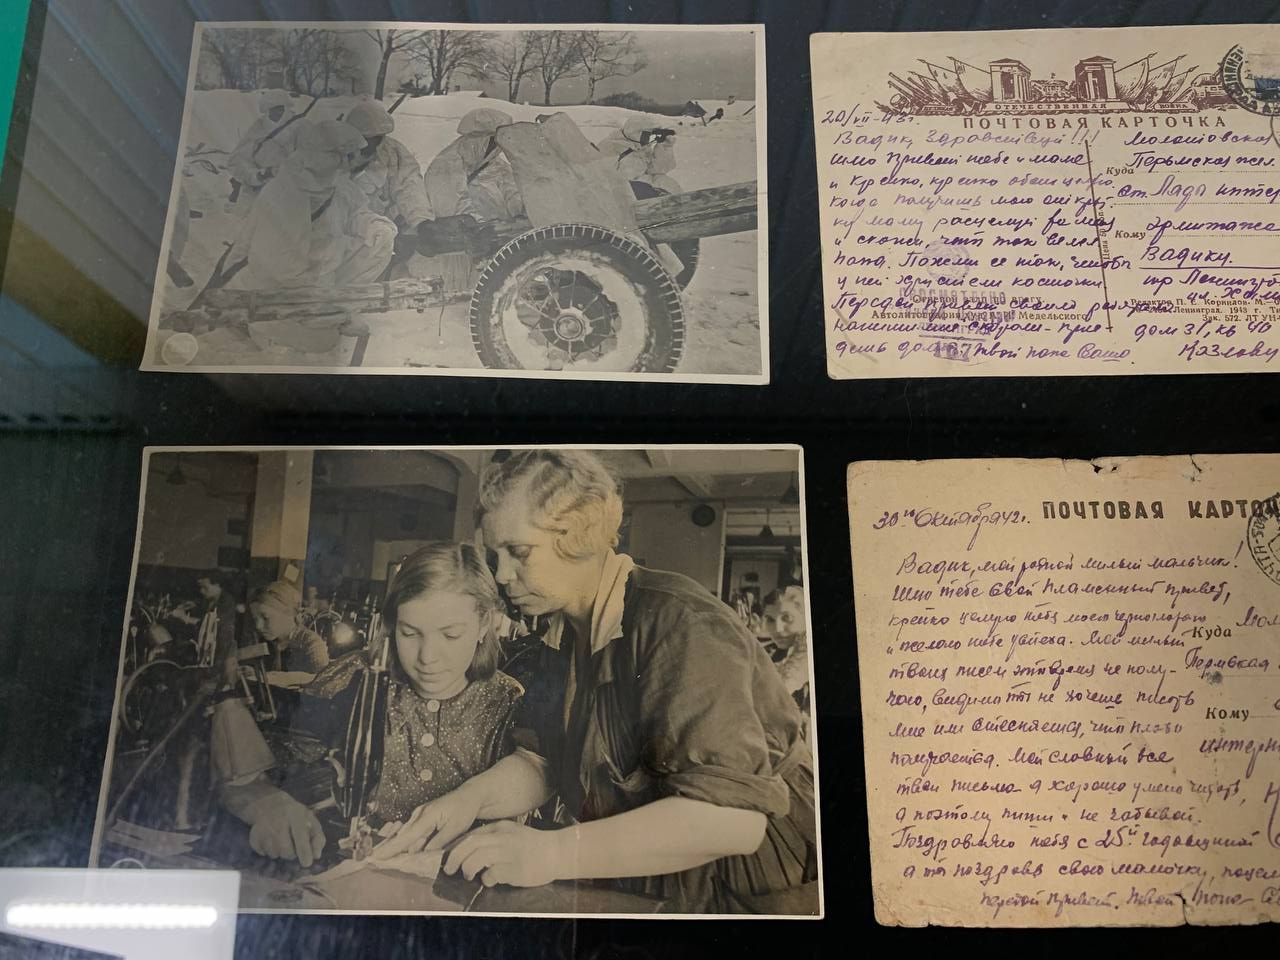 ОТЕЧЕСТВЕННАЯ ВОЙНА
ПОЧТОВАЯ КАРТОЧКА
20/VII-43г.
Вадик, здравствуй!!!
Шлю привет тебе и маме
и крепко, крепко обнимаю.
Когда получишь мою открыт-
ку маму расцелуй
и скажи, что так велел
папа. Пожми ее так, чтобы
у ней хрустели косточки
Передай привет своим
напиши мне скорей
день Твой папа Саша.
Молотовская
Куда Пермская жел.
ст. Ляды интер
Кому Эрмитажа
Вадику.
пр Ленинград
дом 31, кв 40
Козлову
Автолитография худ. Медельского
Редактор П. Корнилов.
Ленинград. 1943 г.
Зак. 572.
167
ПОЧТОВАЯ КАРТОЧ
30го Октября 42г.
Вадик, мой родной милый мальчик!
Шлю тебе свой пламенный привет,
крепко целую тебя моего черноглазого
и желаю тебе успеха. Мой милый
твоих писем это время не полу-
чаю, видимо ты не хочешь писать
мне или стесняешься, что плохо
получается. Мой славный все
твои письма я хорошо умею читать,
а поэтому пиши и не забывай.
Поздравляю тебя с 25й годовщиной
а ты поздравь свою мамочку, поцелу
передай привет. Твой папа
Мол
Куда Пермская
Кому
интерн